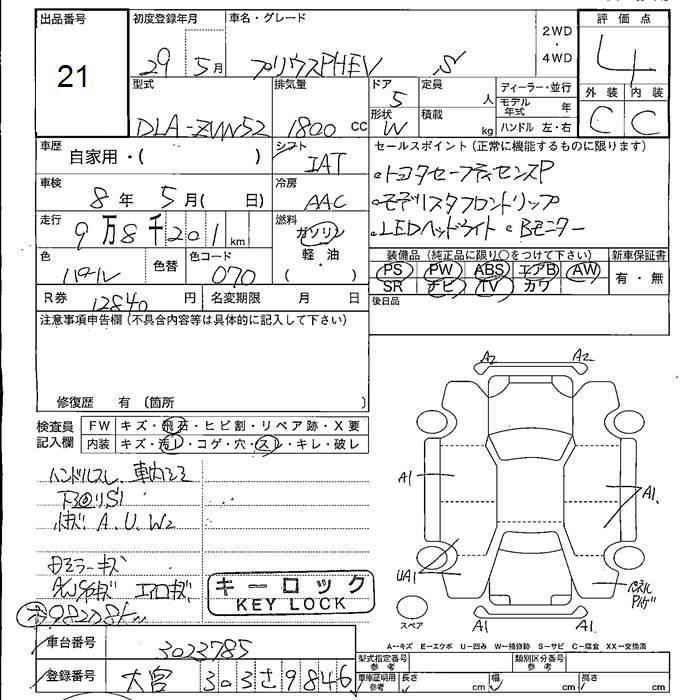 出品番号
21
初度登録年月
29 5月
車名・グレード
プリウスPHEV S
2WD
・
4WD
評価点
4
外装 内装
C C
型式
DLA-ZVW52
排気量
1800 cc
ドア
5
形状
W
定員
人
積載
kg
ディーラー・並行
モデル年式 年
ハンドル 左・右
車歴
自家用・( )
シフト
IAT
車検
8年 5月( 日)
冷房
AAC
走行
9万8千201km
燃料
ガソリン
・
軽・油
( )
色
パール
色替
色コード
070
R券 12840 円
名変期限 月 日
セールスポイント(正常に機能するものに限ります)
・トヨタセーフティセンスP
・モデリスタフロントリップ
・LEDヘッドライト ・Bモニター
装備品(純正品に限り○をつけて下さい)
新車保証書
PS PW ABS エアB AW
SR ナビ TV カワ
有・無
後日品
注意事項申告欄(不具合内容等は具体的に記入して下さい)
修復歴 有 〔箇所 〕
検査員記入欄
FW キズ・飛石・ヒビ割・リペア跡・X要
内装 キズ・汚レ・コゲ・穴・スレ・キレ・破レ
ハンドルスレ 車内ヨゴ
下回りS1
A. U. W2
ミラーキズ
エアロキズ
98208km
キーロック
KEY LOCK
A2 A2
A1 A1.
UA1
パネル
A1 A1
スペア
A-キズ E-エクボ U-凹み W-補修跡 S-サビ C-腐食 XX-交換済
車台番号 3023785
登録番号 大宮 303さ9846
型式指定番号参考
類別区分番号参考
車庫証明用参考 長さ cm 幅 cm 高さ cm